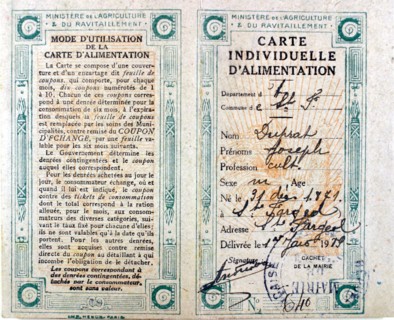 MINISTÈRE DE L'AGRICULTURE
& DU RAVITAILLEMENT
MODE D'UTILISATION
DE LA
CARTE D'ALIMENTATION
La Carte se compose d'une couver-
ture et d'un encartage dit feuille de
coupons, qui comporte, pour chaque
mois, dix coupons numérotés de 1
à 10. Chacun de ces coupons corres-
pond à une denrée déterminée pour la
consommation de six mois, à l'expira-
tion desquels la feuille de coupons
est remplacée par les soins des Muni-
cipalités, contre remise du COUPON
D'ÉCHANGE, par une feuille va-
lable pour les six mois suivants.
Le Gouvernement détermine les
denrées contingentées et le coupon
auquel elles correspondent.
Pour les denrées achetées au jour
le jour, le consommateur échange, soi et
quand il lui est indiqué, le coupon
contre des tickets de consommation
dont le total correspond à la ration
allouée, pour le mois, aux consom-
mateurs des diverses catégories, sui-
vant le taux fixé pour chacune d'elles;
ils ne sont valables qu'à la date qu'ils
portent. Pour les autres denrées,
elles sont acquises contre remise
directe du coupon au détaillant à qui
incombe l'obligation de le détacher.
Les coupons correspondant à
des denrées contingentées, dé-
tachés par le consommateur,
sont sans valeur.
MINISTÈRE DE L'AGRICULTURE
& DU RAVITAILLEMENT
CARTE
INDIVIDUELLE
D'ALIMENTATION
Département d
Commune d
Nom Duprat
Prénoms Joseph
Profession cult.
Sexe m Age
Né le 31 déc 1871
à
Adresse
Délivrée le 17
Signature
CACHET
DE LA MAIRIE
N°